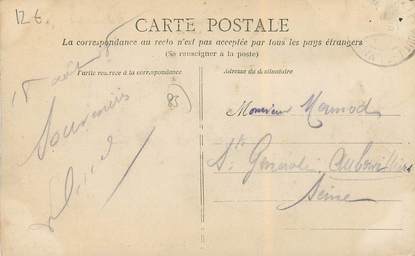 12 €.
CARTE POSTALE
La correspondance au recto n'est pas acceptée par tous les pays étrangers
(Se renseigner à la poste)
Partie réservée à la correspondance
Adresse du destinataire
août
Souvenirs
85
Monsieur
Ste Générale Aubervilliers
Seine